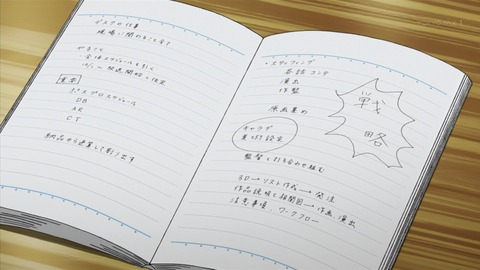 デスクの仕事
現場に関わること全て
やること
全体スケジュールを引く
放送開始と仮定
基本
ポスプロスケジュール
DB
AR
CT
納品から逆算して割り出す
・スタッフィング
各話 コンテ
演出
作監
原画集め
戦略
キャラデ
美術設定
監督と打ち合わせ組む
3D→リスト作成→発注
作品説明と相関図→作画 演出
注意事項、ワークフロー